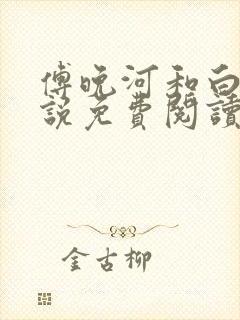 傅晚河和白
說免費閱讀
金古柳